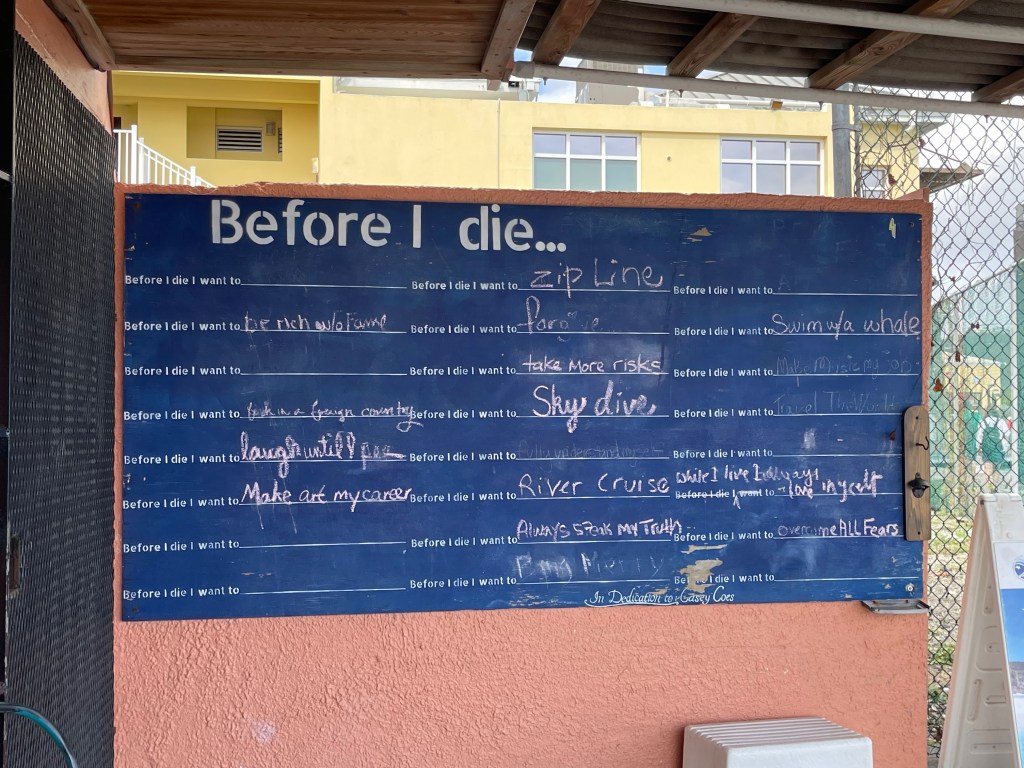 Before I die...
Before I die I want to
Before I die I want to be rich w/o Fame
Before I die I want to
Before I die I want to in a foreign country
Before I die I want to laugh until I pee
Before I die I want to Make art my career
Before I die I want to
Before I die I want to
Before I die I want to zip Line
Before I die I want to
Before I die I want to take More risks
Before I die I want to Sky dive
Before I die I want to Fully understand
Before I die I want to River Cruise
Before I die I want to Always speak My Truth
Before I die I want to
Before I die I want to
Before I die I want to Swim w/a whale
Before I die I want to Make Music my
Before I die I want to Travel The World
Before I die I want to
while I live I always
Before I die I want to Love myself
Before I die I want to overcome ALL Fears
Before I die I want to
In Dedication to Casey Coes